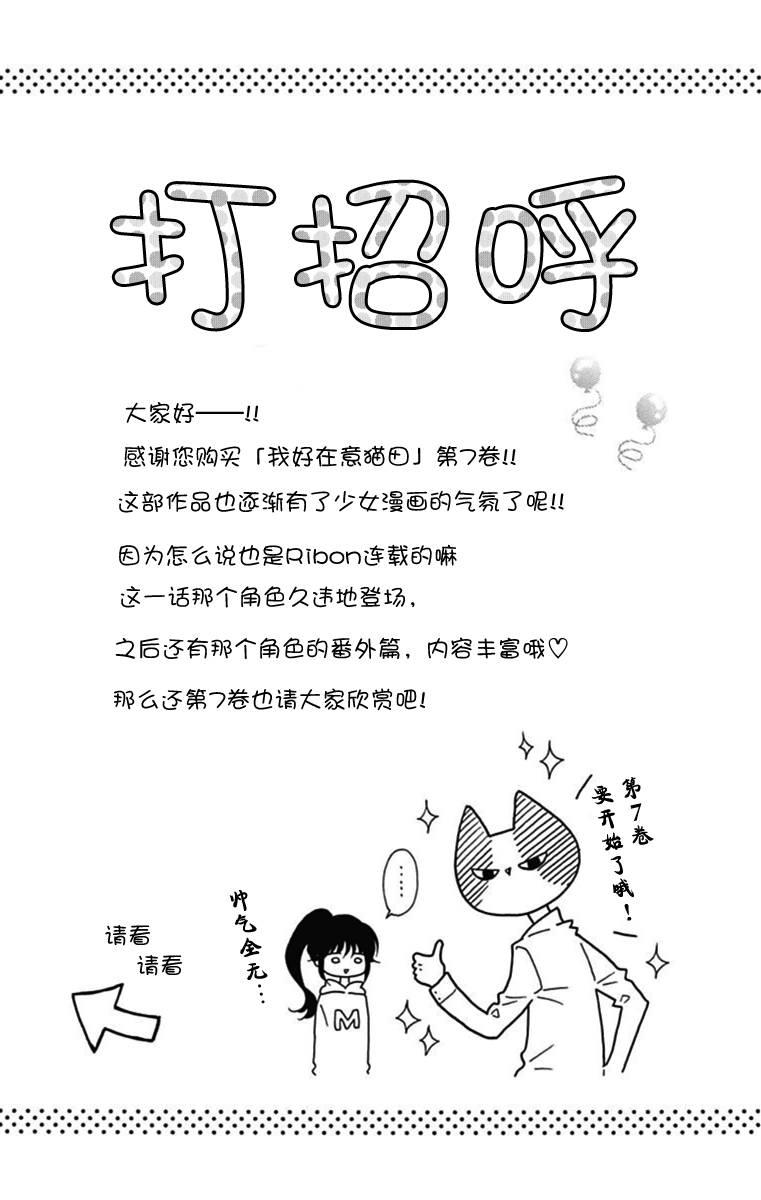 打招呼
大家好——!!
感谢您购买「我好在意猫田」第7卷!!
这部作品也逐渐有了少女漫画的气氛了呢!!
因为怎么说也是Ribon连载的嘛
这一话那个角色久违地登场，
之后还有那个角色的番外篇，内容丰富哦♡
那么还第7卷也请大家欣赏吧!
第7卷
要开始了哦！
……
帅气全无…
请看
请看
M